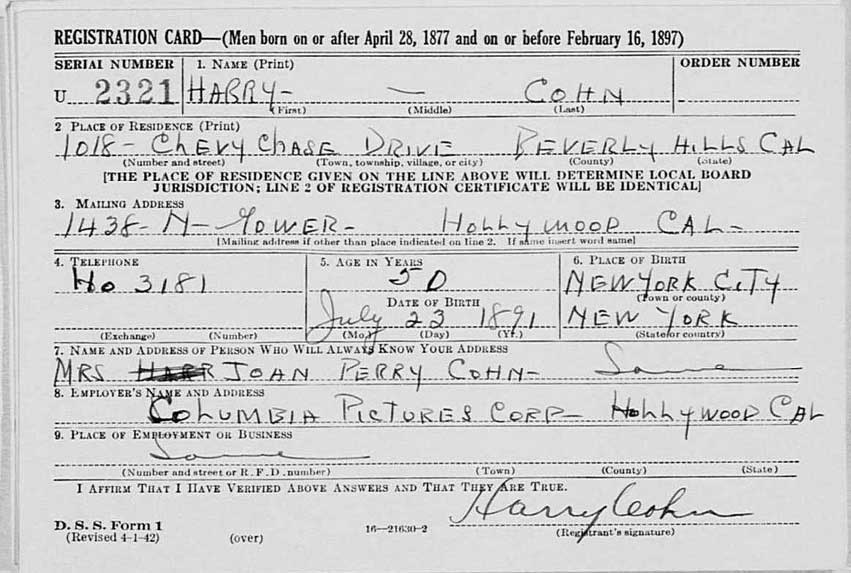 REGISTRATION CARD—(Men born on or after April 28, 1877 and on or before February 16, 1897)
SERIAL NUMBER 1. NAME (Print) ORDER NUMBER
U 2321 HARRY- — COHN
(First) (Middle) (Last)
2 PLACE OF RESIDENCE (Print)
1018- CHEVY CHASE DRIVE BEVERLY HILLS CAL
(Number and street) (Town, township, village, or city) (County) (State)
[THE PLACE OF RESIDENCE GIVEN ON THE LINE ABOVE WILL DETERMINE LOCAL BOARD
JURISDICTION; LINE 2 OF REGISTRATION CERTIFICATE WILL BE IDENTICAL]
3. MAILING ADDRESS
1438- N- GOWER- HOLLYWOOD CAL-
[Mailing address if other than place indicated on line 2. If same insert word same]
4. TELEPHONE 5. AGE IN YEARS 6. PLACE OF BIRTH
Ho 3181 50 NEW YORK CITY
DATE OF BIRTH (Town or county)
July 23 1891 NEW YORK
(Exchange) (Number) (Mo.) (Day) (Yr.) (State or country)
7. NAME AND ADDRESS OF PERSON WHO WILL ALWAYS KNOW YOUR ADDRESS
MRS HARR JOAN PERRY COHN- Same
8. EMPLOYER'S NAME AND ADDRESS
COLUMBIA PICTURES CORP- HOLLYWOOD CAL
9. PLACE OF EMPLOYMENT OR BUSINESS
Same
(Number and street or R. F. D. number) (Town) (County) (State)
I AFFIRM THAT I HAVE VERIFIED ABOVE ANSWERS AND THAT THEY ARE TRUE.
Harry Cohn
D. S. S. Form 1
(Revised 4-1-42) (over) 16—21630-2 (Registrant's signature)